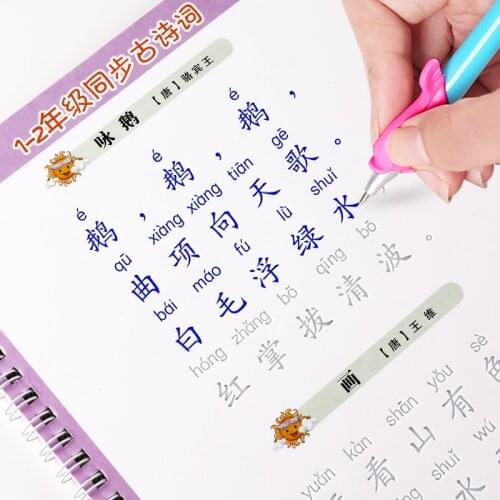 1-2年级同步古诗词
咏鹅 【唐】骆宾王
é é é
鹅，鹅，鹅，
qū xiàng xiàng tiān gē
曲项向天歌。
bái máo fú lǜ shuǐ
白毛浮绿水
hóng zhǎng bō qīng bō
红掌拨清波。
画 【唐】王维
yuǎn kàn shān yǒu sè
看山有色
水